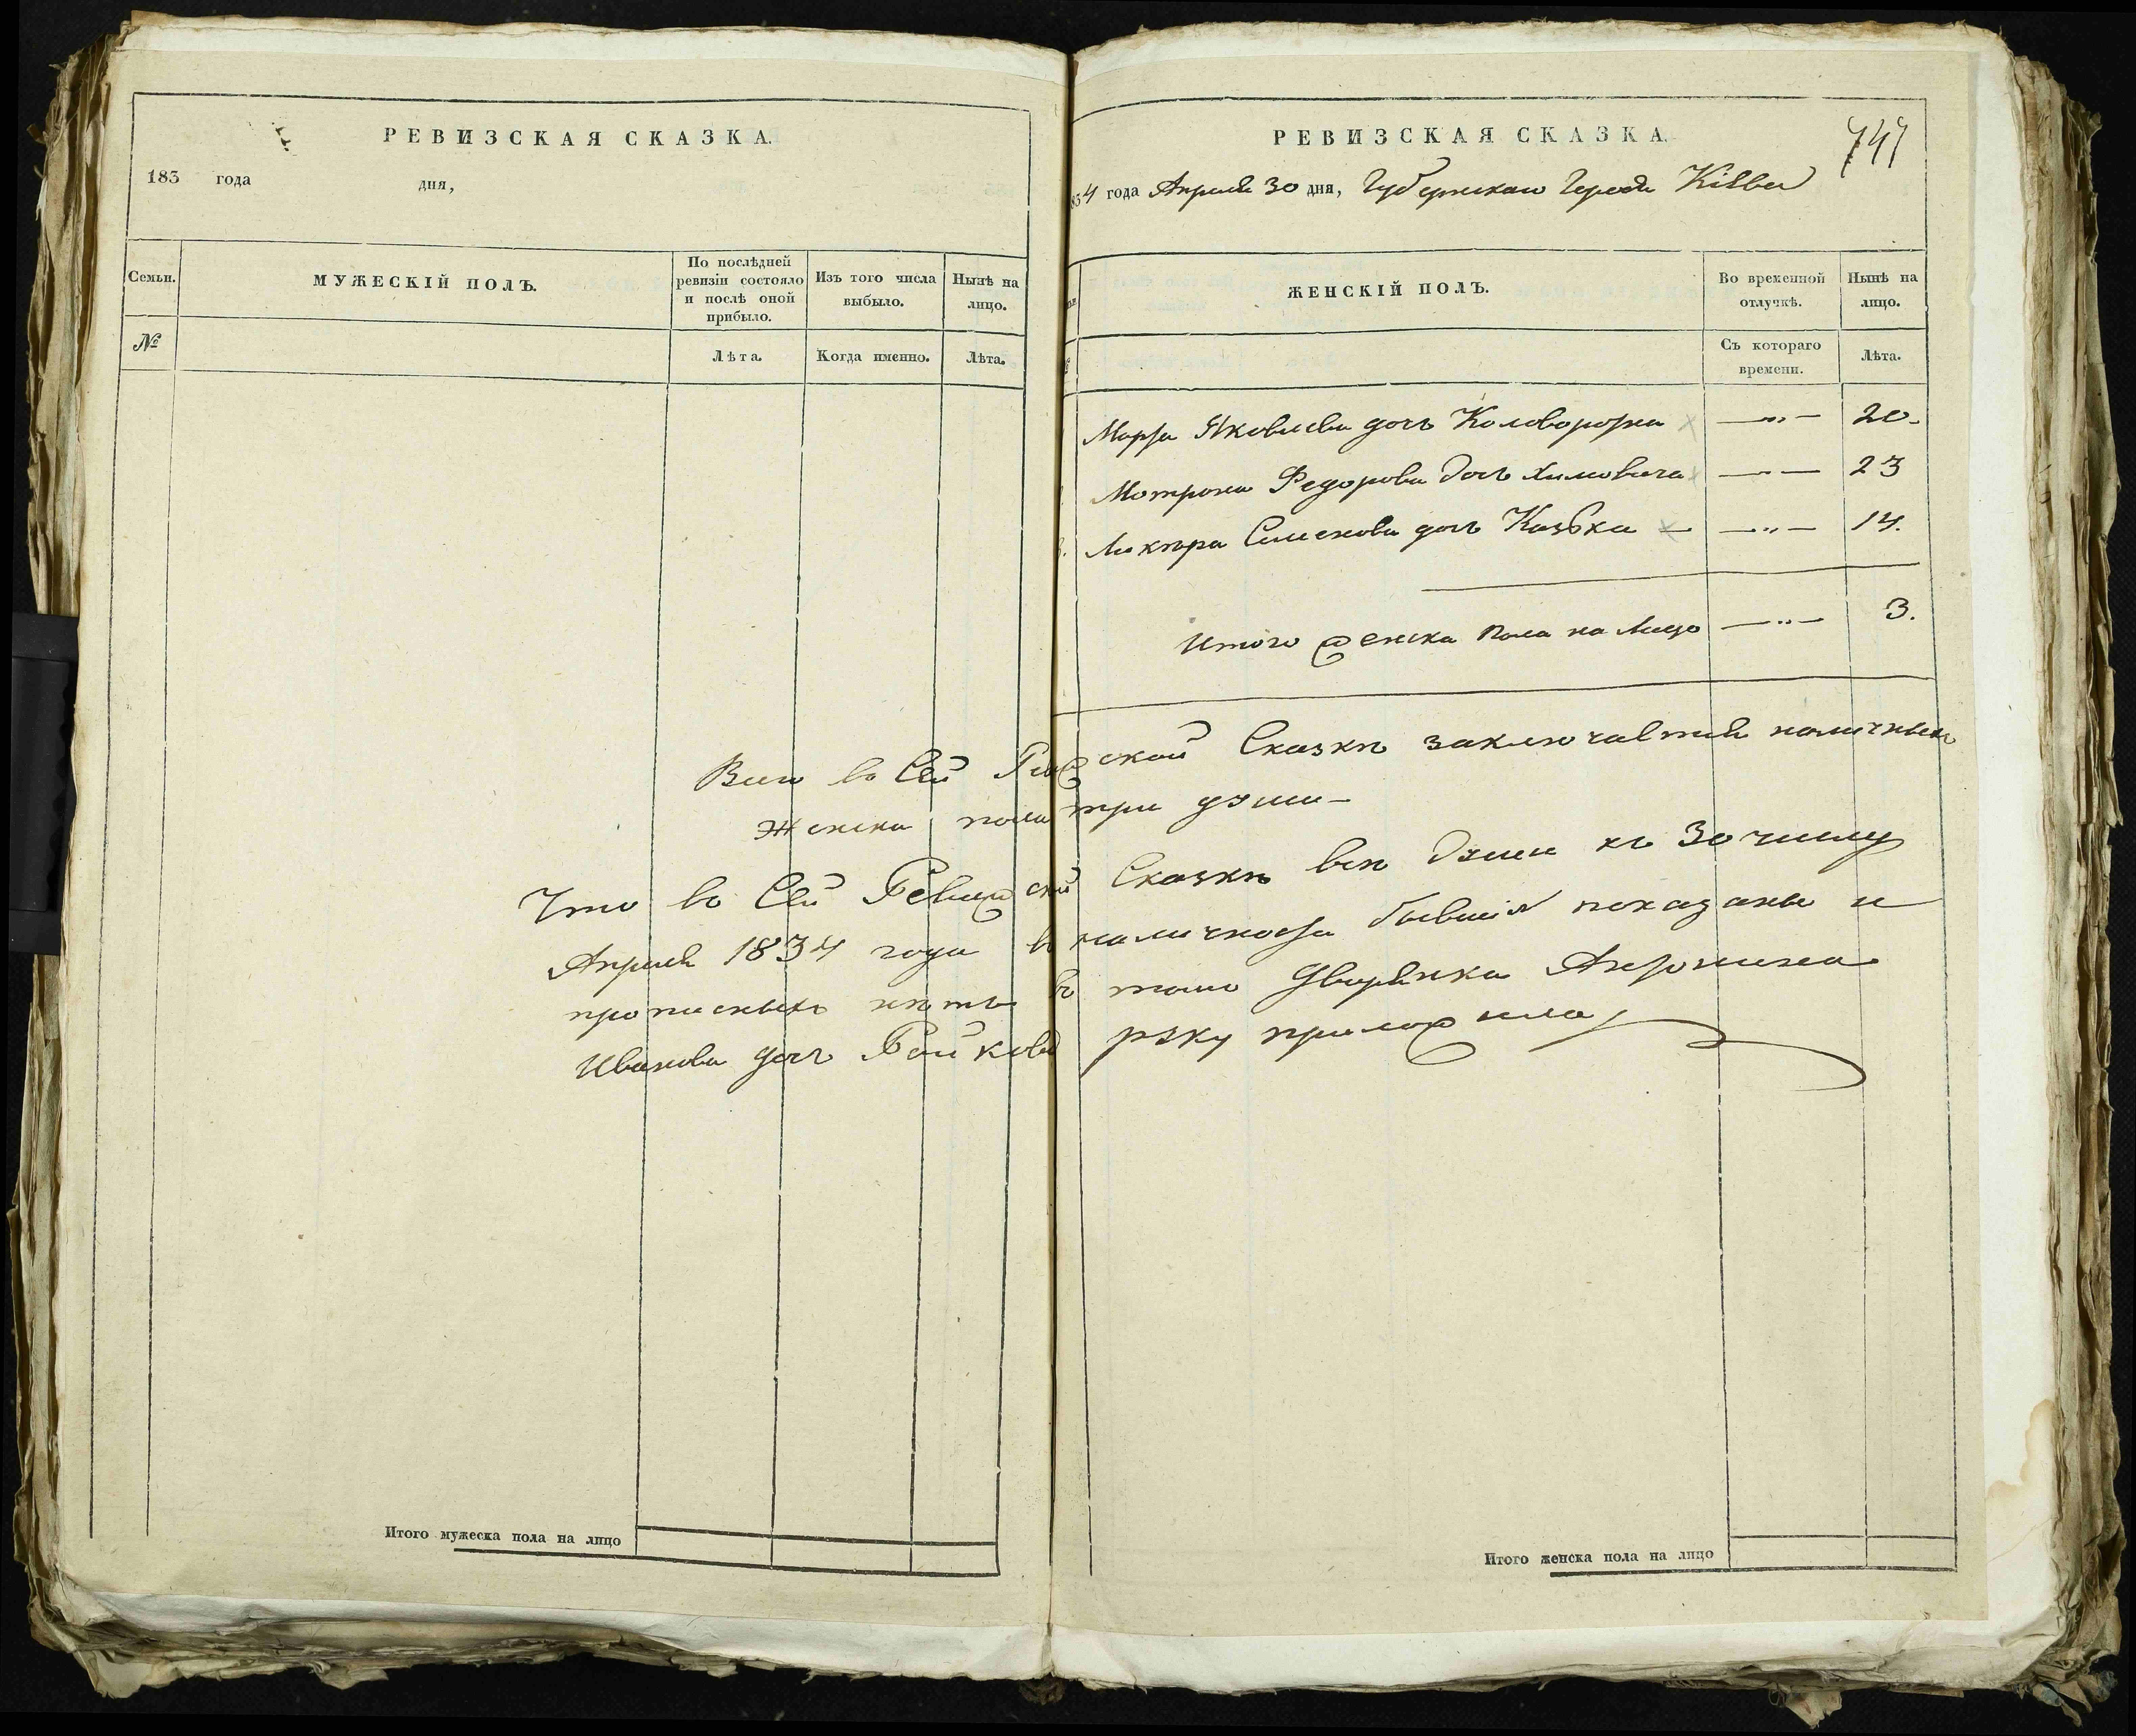 РЕВИЗСКАЯ СКАЗКА.
183 года дня,
Семьи.
МУЖЕСКІЙ ПОЛЪ.
По послѣдней ревизіи состояло и послѣ оной прибыло.
Изъ того числа выбыло.
Нынѣ на лицо.
№
Лѣта.
Когда именно.
Лѣта.
Итого мужеска пола на лицо
747
РЕВИЗСКАЯ СКАЗКА.
834 года Апреля 30 дня, Губернскаго Города Кіева
ЖЕНСКІЙ ПОЛЪ.
Во временной отлучкѣ.
Нынѣ на лицо.
Съ котораго времени.
Лѣта.
Марфа Яковлева дочь Коловоротка — „ — 20.
Мотрона Федорова дочь Климовича — „ — 23
Семенова дочь Казбка — „ — 14.
Итого женска пола на лицо — „ — 3.
Всего въ Сей Ревизской Сказкѣ заключается наличныхъ
женска пола три души —
Что во Сей Ревижской Сказкѣ всѣ души къ 30 числу
Апреля 1834 года в наличности бывшія показаны и
прописныхъ нѣтъ в томъ Дворянка
Иванова дочь Бойкова руку приложила
Итого женска пола на лицо